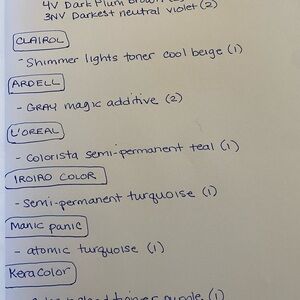 4V Dark Plum Brown
3NV Darkest neutral violet (2)
CLAIROL
- Shimmer lights toner cool beige (1)
ARDELL
- GRAY magic additive (2)
L'OREAL
- Colorista semi-permanent teal (1)
IROIRO COLOR
- Semi-permanent turquoise (1)
Manic panic
- atomic turquoise (1)
KeraColor
purple (1)